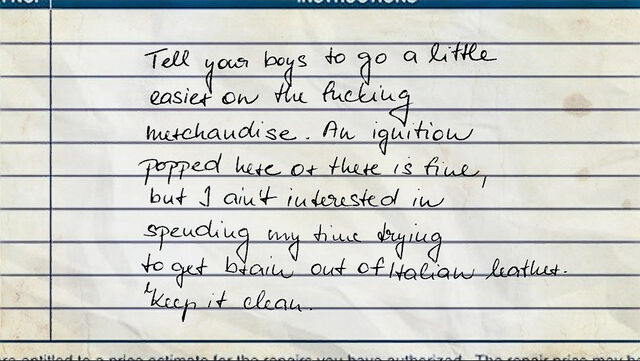 INSTRUCTIONS
Tell your boys to go a little
easier on the fucking
merchandise. An ignition
popped here or there is fine,
but I ain't interested in
spending my time trying
to get brain out of Italian leather.
Keep it clean.
entitled to a price estimate for the repairs you have authorized. The repair price may be